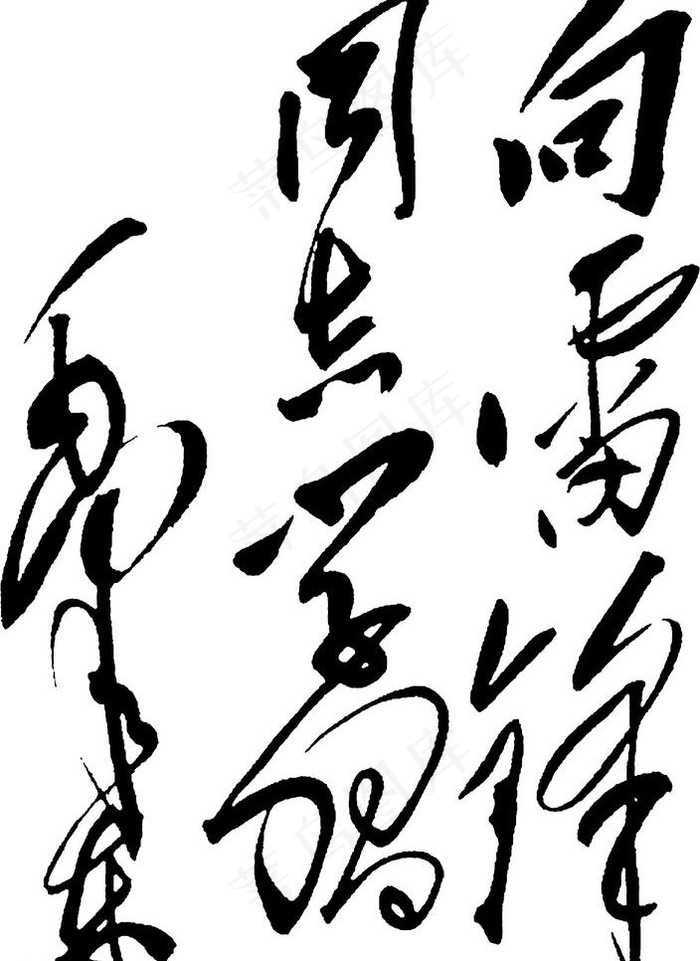 向雷锋
同志学习
毛泽东
菜鸟图库
菜鸟图库
菜鸟图库